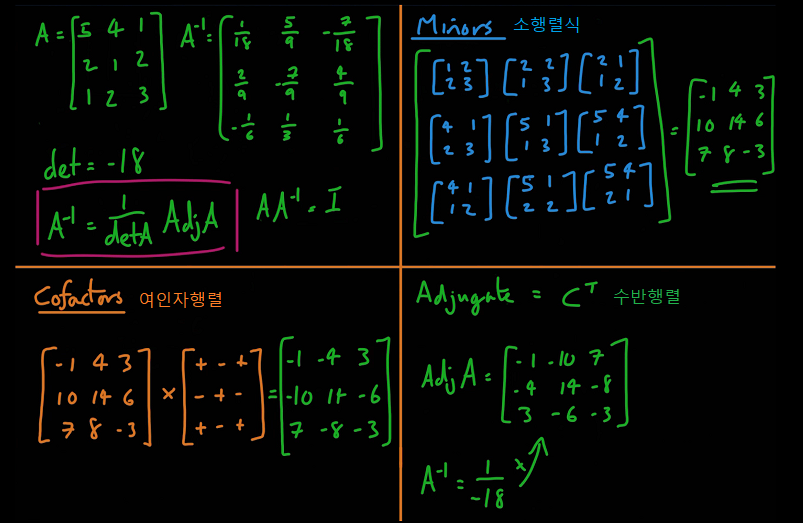 A = [5 4 1
2 1 2
1 2 3]
A⁻¹ = [1/18 5/9 -7/18
2/9 -7/9 4/9
-1/6 1/3 1/6]
det = -18
A⁻¹ = 1/detA AdjA
AA⁻¹ = I
Minors 소행렬식
[[1 2 [2 2 [2 1
2 3] 1 3] 1 2]
[4 1 [5 1 [5 4
2 3] 1 3] 1 2]
[4 1 [5 1 [5 4
1 2] 2 2] 2 1]]
= [-1 4 3
10 14 6
7 8 -3]
Cofactors 여인자행렬
[-1 4 3
10 14 6
7 8 -3]
× [+ - +
- + -
+ - +]
= [-1 -4 3
-10 14 -6
7 -8 -3]
Adjugate = Cᵀ 수반행렬
AdjA = [-1 -10 7
-4 14 -8
3 -6 -3]
A⁻¹ = 1/-18 ×